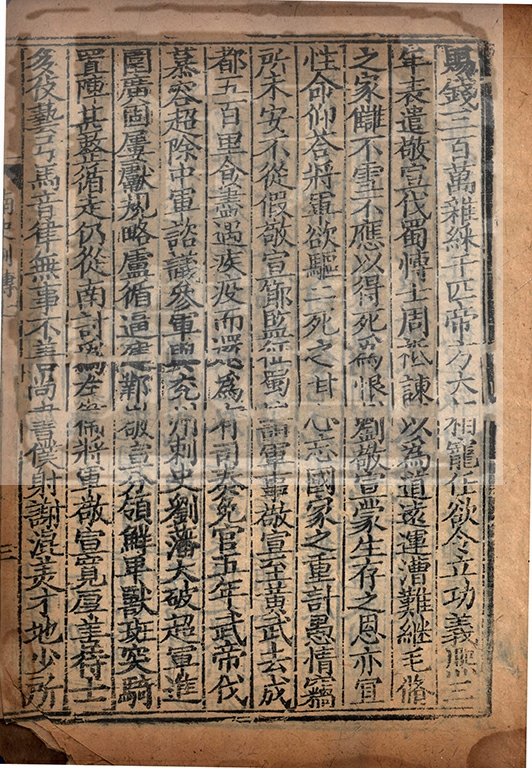 賜錢三百萬雜綵千匹帝方大相寵任欲令立功義熙三
年表遣敬宣伐蜀博士周祗諫以為道遠運漕難繼毛脩
之家讎不雪不應以得死為恨劉敬宣蒙生存之恩亦宜
性命仰荅將軍欲驅二死之甘心忘國家之重計愚情竊
所未安不從假敬宣節監征蜀諸軍事敬宣至黃武去成
都五百里食盡遇疾疫而還為有司奏免官五年武帝伐
慕容超除中軍諮議參軍與兖州刺史劉藩大破超軍進
圍廣固屢獻規略盧循逼建鄴敬宣分領鮮卑獸班突騎
置陣甚整循走仍從南討為左衛將軍敬宣寬厚善待士
多伎藝弓馬音律無事不善尚書僕射謝混美才地少所
列傳
三